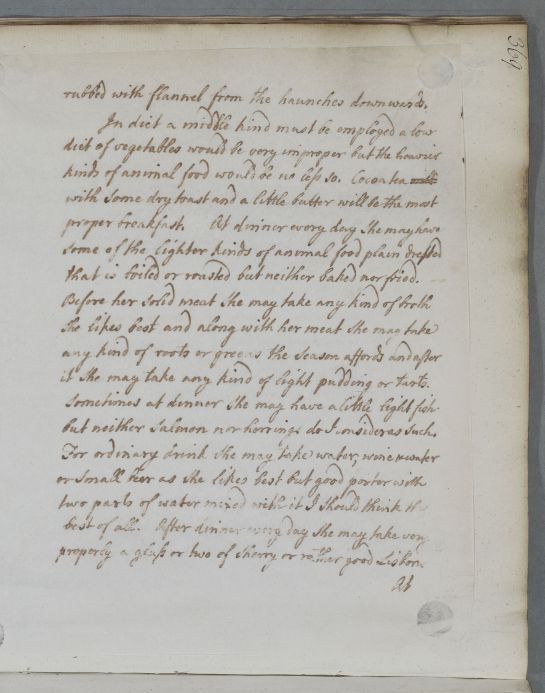 369
rubbed with flannel from the haunches downwards.
In diet a middle kind must be employed a low
diet of vegetables would be very improper but the heavier
kinds of animal food would be no less so. Cocoa tea milk
with some dry toast and a little butter will be the most
proper breakfast. At dinner every day she may have
some of the lighter kinds of animal food plain dressed
that is boiled or roasted but neither baked nor fried.
Before her solid meat she may take any kind of broth
she likes best and along with her meat she may take
any kind of roots or greens the season affords and after
it she may take any kind of light pudding or tarts.
Sometimes at dinner she may have a little light fish
but neither salmon nor herrings do I consider as such.
For ordinary drink she may take water, wine & water
or small beer as she likes best but good porter with
two parts of water mixed with it I should think the
best of all. After dinner every day she may take very
properly a glass or two of sherry or rather good Lisbon.
At